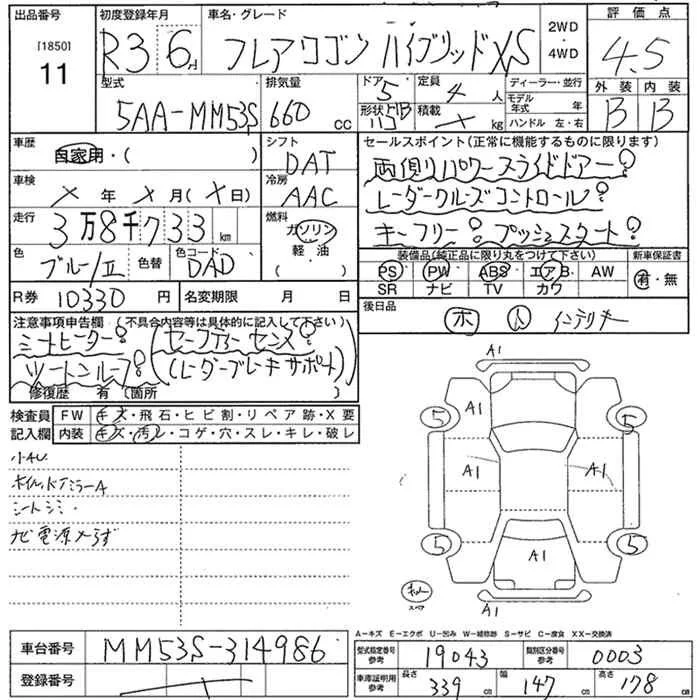 出品番号
[1850]
11
初度登録年月
R3 6月
車名・グレード
フレアワゴン ハイブリッドXS
2WD
・
4WD
評価点
4.5
外装 内装
B B
型式
5AA-MM53S
排気量
660 cc
ドア
5
形状
定員
4 人
積載
× kg
ディーラー・並行
モデル年式 年
ハンドル 左・右
車歴
自家用・( )
シフト
DAT
車検
× 年 × 月(× 日)
冷房
AAC
走行
3万8千733 km
燃料
ガソリン
軽・油
( )
色
ブルー/II
色替
色コード
DAD
R券 10330 円
名変期限 月 日
セールスポイント(正常に機能するものに限ります)
両側パワースライドドアー!
レーダークルーズコントロール!
キーフリー! プッシュスタート!
装備品(純正品に限り丸をつけて下さい)
PS PW ABS エアB AW
SR ナビ TV カワ
新車保証書
有・無
後日品
ホ 人 インテリキー
注意事項申告欄(不具合内容等は具体的に記入して下さい)
シートヒーター! (セーフティーセンス!
ツートンルーフ! (レーダーブレーキサポート)
修復歴 有(箇所 )
検査員記入欄
FW キズ・飛石・ヒビ割・リペア跡・X要
内装 キズ・汚レ・コゲ・穴・スレ・キレ・破レ
小AU
ホイル、ドアミラーA
シートシミ
ナビ電源入らず
A1
A1
5 5
A1 A1
5 5
A1
A1
キット
スペア
車台番号 MM53S-314986
登録番号
A-キズ E-エクボ U-凹み W-補修跡 S-サビ C-腐食 XX-交換済
型式指定番号 参考 19043
類別区分番号 参考 0003
車庫証明用 参考 長さ 339 cm 幅 147 cm 高さ 178 cm